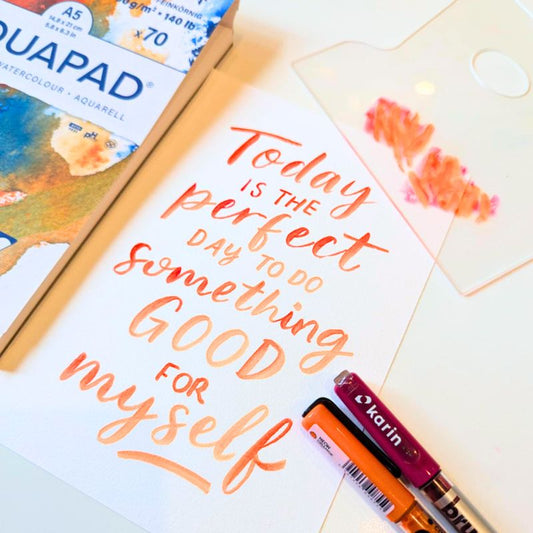 FEINKÖRNIG
A5
14,8 x 21 cm
5.8 x 8.3 in
140 lb
x70
UAPAD®
WATERCOLOUR • AQUARELL
pH
Today
IS THE
perfect
DAY TO DO
something
GOOD
FOR
myself
karin
NEON